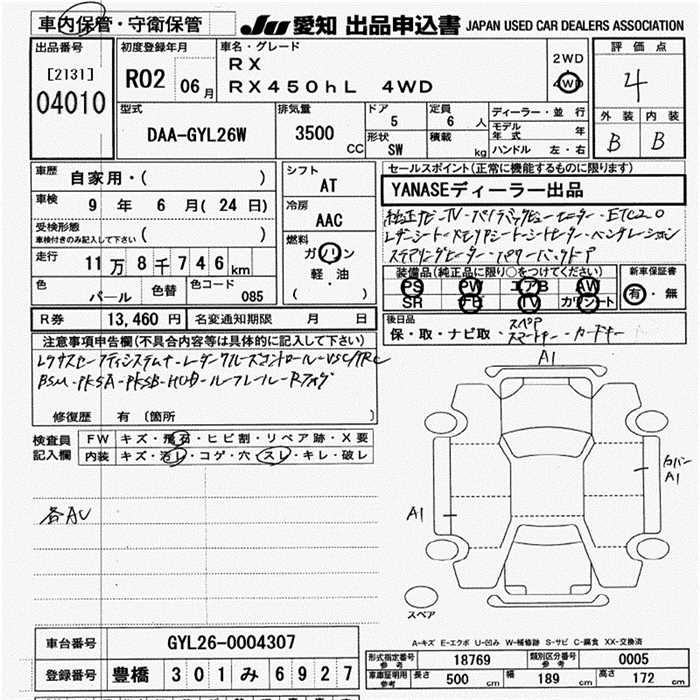 車内保管・守衛保管
JU 愛知 出品申込書 JAPAN USED CAR DEALERS ASSOCIATION
出品番号
[2131]
04010
初度登録年月
R02 06月
車名・グレード
RX
RX450hL 4WD
2WD
4WD
評価点
4
外装 内装
B B
型式
DAA-GYL26W
排気量
3500 CC
ドア
5
定員
6 人
形状
SW
積載
kg
ディーラー・並行
モデル年式 年
ハンドル 左・右
車歴
自家用・( )
車検
9 年 6 月( 24 日)
受検形態
車検付きのみ記入して下さい ( )
走行
11万8千746km
色
パール
色替
色コード
085
シフト
AT
冷房
AAC
燃料
ガソリン
軽・油
( )
セールスポイント(正常に機能するものに限ります)
YANASEディーラー出品
純正ナビ・TV・パノラミックビューモニター・ETC2.0
レザーシート・メモリアシート・シートヒーター・ベンチレーション
ステアリングヒーター・パワーバックドア
装備品(純正品に限り○をつけてください)
PS PW エアB AW
SR TV カワシート
新車保証書
有・無
R券 13,460 円 名変通知期限 月 日
後日品
保・取・ナビ取・スペア
スマートキー・カードキー
注意事項申告欄(不具合内容等は具体的に記入して下さい)
レクサスセーフティシステム+・レーダークルーズコントロール・VSC/TRC
BSM・PKSA・PKSB・HUD・ルーフレール・Rフォグ
修復歴 有 〔箇所 〕
検査員
記入欄
FW キズ・飛石・ヒビ割・リペア跡・X要
内装 キズ・汚レ・コゲ・穴・スレ・キレ・破レ
各AU
A1
カバー
A1
A1
スペア
A-キズ E-エクボ U-凹み W-補修跡 S-サビ C-腐食 XX-交換済
車台番号 GYL26-0004307
登録番号 豊橋 301 み 6927
形式指定番号
参考
18769
類別区分番号
参考
0005
車庫証明用
参考
長さ 500 cm 幅 189 cm 高さ 172 cm